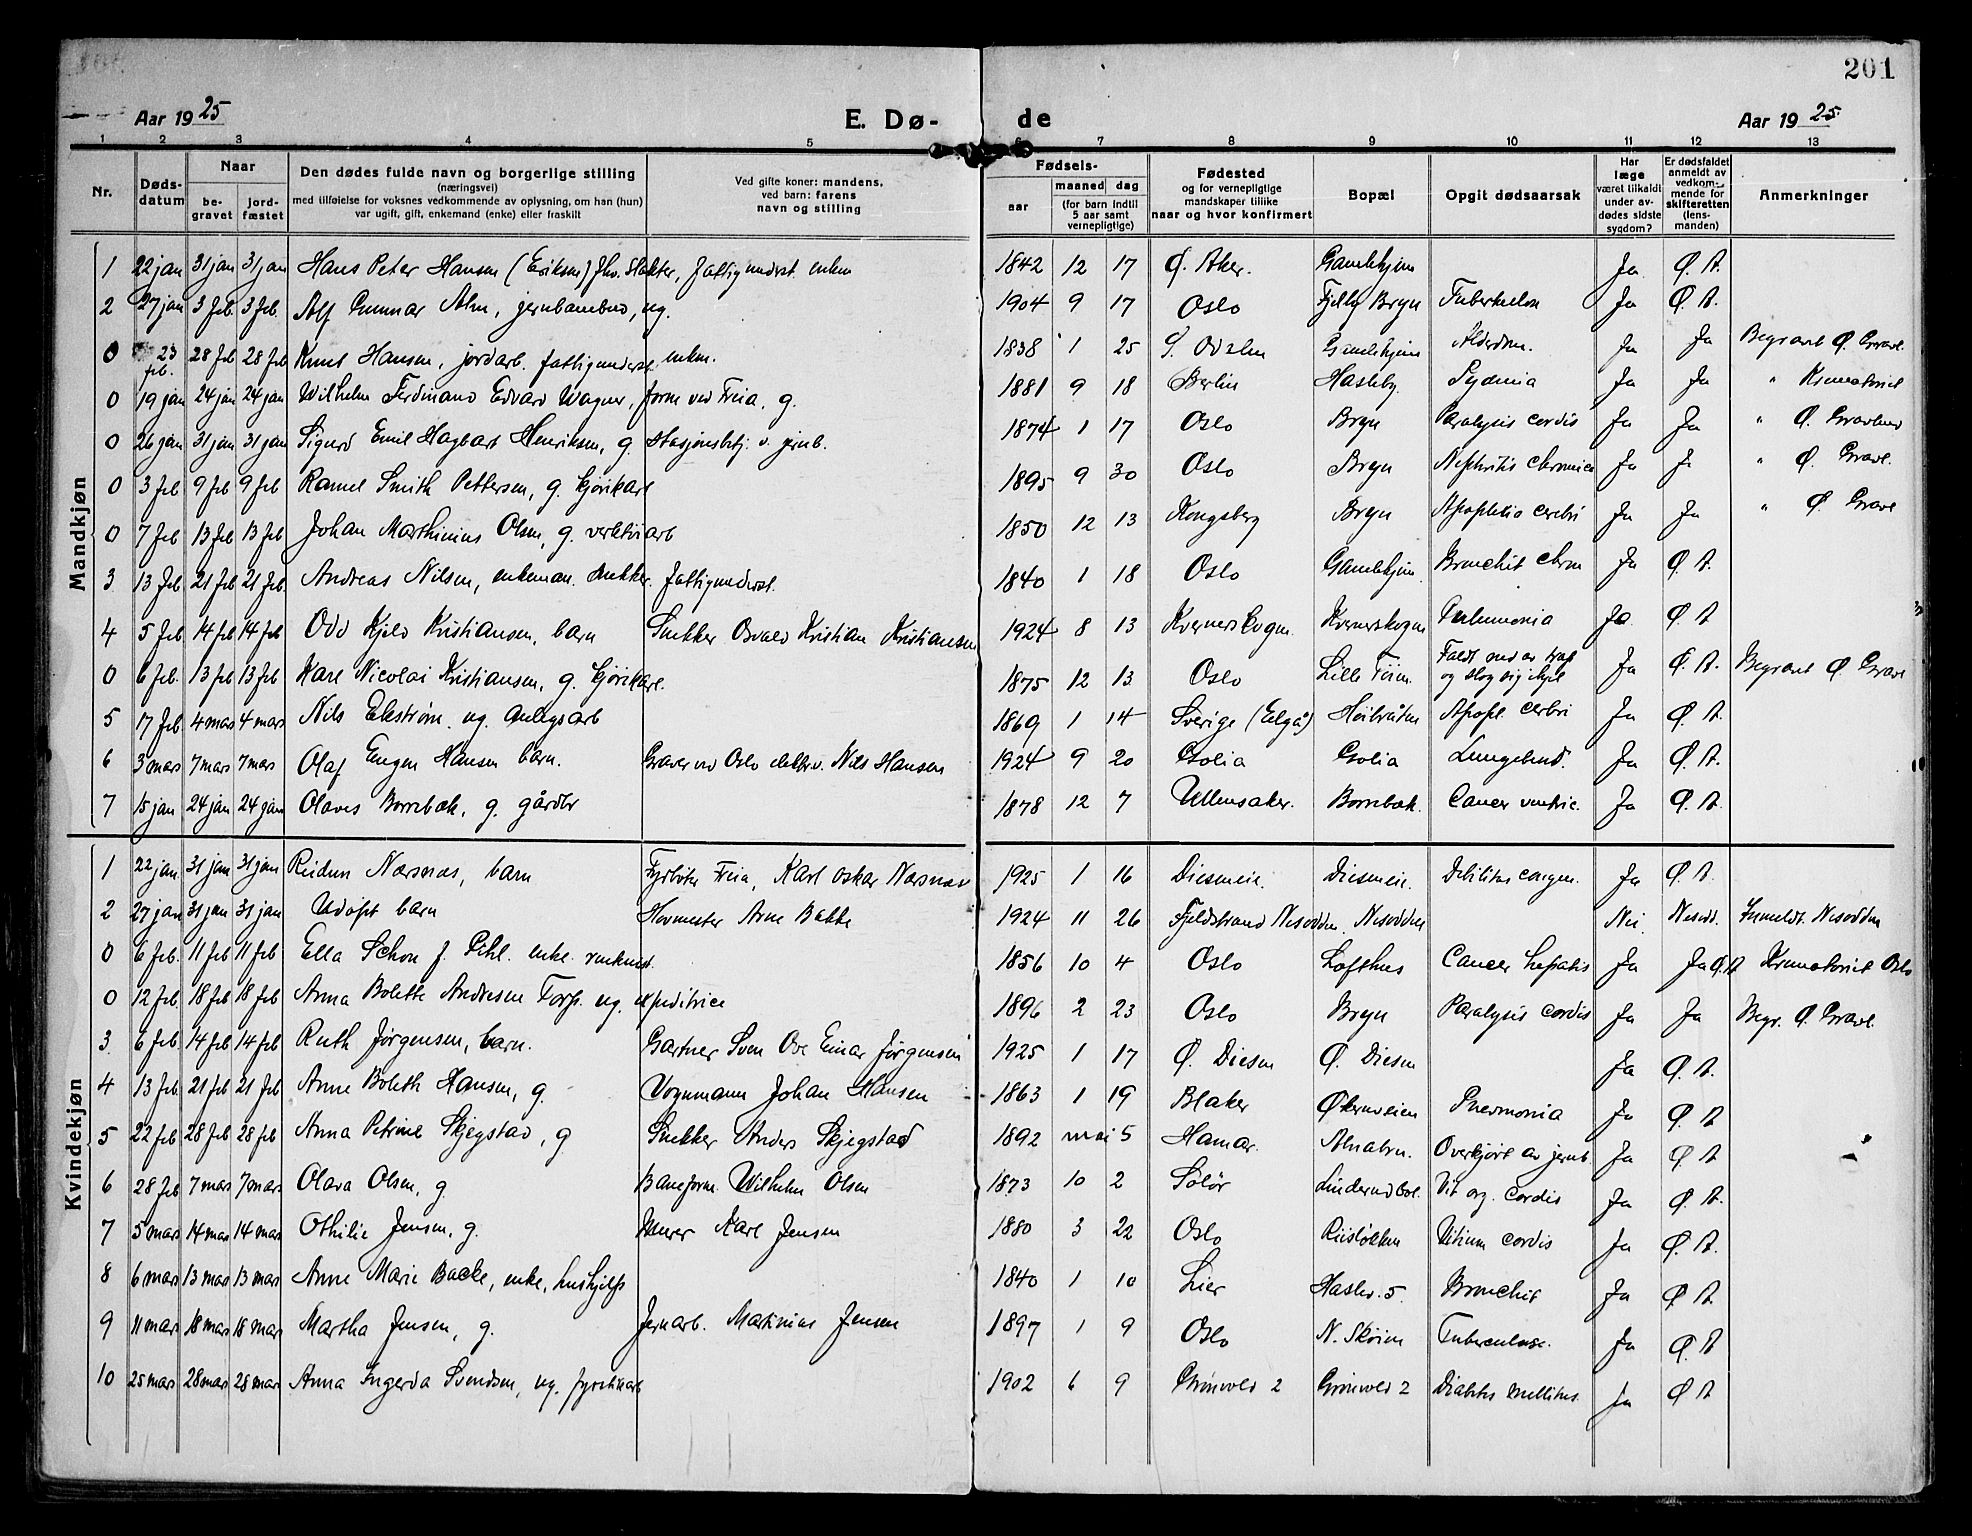 201
Aar 1925 E. Dø- de Aar 1925
1 2 3 4 5 6 7 8 9 10 11 12 13
Nr. Døds-datum Naar be-gravet jord-fæstet Den dødes fulde navn og borgerlige stilling (næringsvei) med tilføielse for voksnes vedkommende av oplysning, om han (hun) var ugift, gift, enkemand (enke) eller fraskilt Ved gifte koner: mandens, ved barn: farens navn og stilling Fødsels- aar maaned dag (for barn indtil 5 aar samt vernepligtige) Fødested og for vernepligtige mandskaper tillike naar og hvor konfirmert Bopæl Opgit dødsaarsak Har læge været tilkaldt under av-dødes sidste sygdom? Er dødsfaldet anmeldt av vedkom-mende for skifteretten (lens-manden) Anmerkninger
Mandkjøn
1 22 jan 31 jan 31 jan Hans Peter Hansen (Eriksen) fhv. Slakter, fattigunderst. enkem 1842 12 17 Ø. Aker. Gamlehjem Ja Ø. A.
2 27 jan 3 feb. 3 feb. Alf Gunnar Alm, jernbanebud, ug. 1904 9 17 Oslo Fjellh. Bryn Tuberkulose Ja Ø. A.
0 23 feb. 28 feb 28 feb Knut Hansen, jordarb. fattigunderst. enkem. 1838 1 25 S. Odalen Gamlehjem Alderdom. Ja Ja Begravet Ø. Gravl.
0 19 jan 24 jan 24 jan Wilhelm Ferdinand Edvard Wagner, form ved Freia, g. 1881 9 18 Berlin Hasleby. Ja Ja " Krematoriet
0 26 jan 31 jan 31 jan Sigurd Emil Hagbart Henriksen, g. Stasjonsbetj. v. jernb. 1874 1 17 Oslo Bryn Paralysis cordis Ja Ja " Ø. Gravlund
0 3 feb 9 feb 9 feb Smith Pettersen, g. kjørekarl 1895 9 30 Oslo Bryn Nephritis chronica Ja Ja " Ø. Gravl.
0 7 feb 13 feb 13 feb Johan Marthinius Olsen, g. verktøiarb 1850 12 13 Kongsberg Bryn Apoplexia cerebri Ja Ja " Ø Gravl
3 13 feb. 21 feb 21 feb. Andreas Nilsen, enkeman. snekker. fattigunderst. 1840 1 18 Oslo Gamlehjem. Bronchit chron Ja Ø. A.
4 5 feb 14 feb 14 feb Odd Kjeld Kristiansen, barn Snekker Osvald Kristian Kristiansen 1924 8 13 Kvernerskogen. Kvernerskogen Pulmmonia Ja Ø. A
0 6 feb. 13 feb 13 feb Karl Nicolai Kristiansen, g. kjørekarl. 1875 12 13 Oslo Lille Tøien. Faldt ned av trap og slog sig ihjel Ja Ø. A. Begravet Ø Gravl
5 17 feb. 4 mars 4 mars Nils Ekstrøm. ug. anlegsarb 1869 1 14 Sverige (Elgå) Høibråten Apopl. cerebri Ja Ø. A.
6 3 mars 7 mars 7 mars Olaf Eugen Hansen barn. Graver ved Oslo elektr. v. Nils Hansen 1924 9 20 Godlia Godlia Lungebet. Ja Ø. A.
7 15 jan 24 jan 24 jan Olaves Borrebæk, g. gårdbr 1878 12 7 Ullensaker. Borrebæk. Cancer ventric. Ja Ø. A.
Kvindekjøn
1 22 jan. 31 jan 31 jan Reidun Næsnæs, barn Fyrbøter Freia, Karl Oskar Næsnæs 1925 1 16 Disenveien. Disenveien. Debilitas congen. Ja Ø. A.
2 27 jan 31 jan 31 jan Udøpt barn Hovmester Arne Bakke 1924 11 26 Fjeldstrand Nesodden. Nesodden Nei. Nesodd. Innmeldt. Nesodden
0 6 feb. 11 feb 11 feb Ella Schon f. Pihl. enke. 1856 10 4 Oslo Lofthus Cancer hepatis Ja Ja Ø. A Krematoriet Oslo
0 12 feb. 18 feb 18 feb Anna Bolette Andresen Torp. ug. expeditrice 1896 2 23 Oslo Bryn Paralysis cordis Ja Ja Begr. Ø. Gravl.
3 6 feb. 14 feb 14 feb Ruth Jørgensen, barn. Gartner Sven Ove Einar Jørgensen 1925 1 17 Ø. Disen Ø. Disen Ja Ø. A.
4 13 feb. 21 feb 21 feb. Anne Boleth Hansen, g. Vognmann Johan Hansen 1863 1 19 Blaker Økernveien Pnevmonia Ja Ø. A
5 22 feb 28 feb 28 feb Anna Petrine Skjegstad, g Snekker Anders Skjegstad 1892 mai 5 Hamar. Alnabru. Overkjørt av jernb. Ja Ø. A
6 28 feb 7 mars 7 mars Olava Olsen, g Baneform. Wilhelm Olsen 1873 10 2 Solør Linderud bol. Vit org. cordis Ja Ø. A
7 5 mars 14 mars 14 mars Othilie Jensen, g. Murer Karl Jensen 1880 3 22 Oslo Risløkken Vitium cordis Ja Ø. A.
8 6 mars 13 mars 13 mars Anne Marie Backe, enke, hushjelp 1840 1 10 Lier Haslev. 5. Bronchit Ja Ø. A.
9 11 mars 18 mars 18 mars Martha Jensen, g. Jernarb. Martinius Jensen 1897 1 9 Oslo N. Skøien Tuberculose. Ja Ø. A.
10 25 mars 28 mars 28 mars Anna Ingerda Svendsen, ug. fyrstikarb 1902 6 9 Grønvold 2 Grønvold 2 Diabetes mellitus. Ja Ø. A